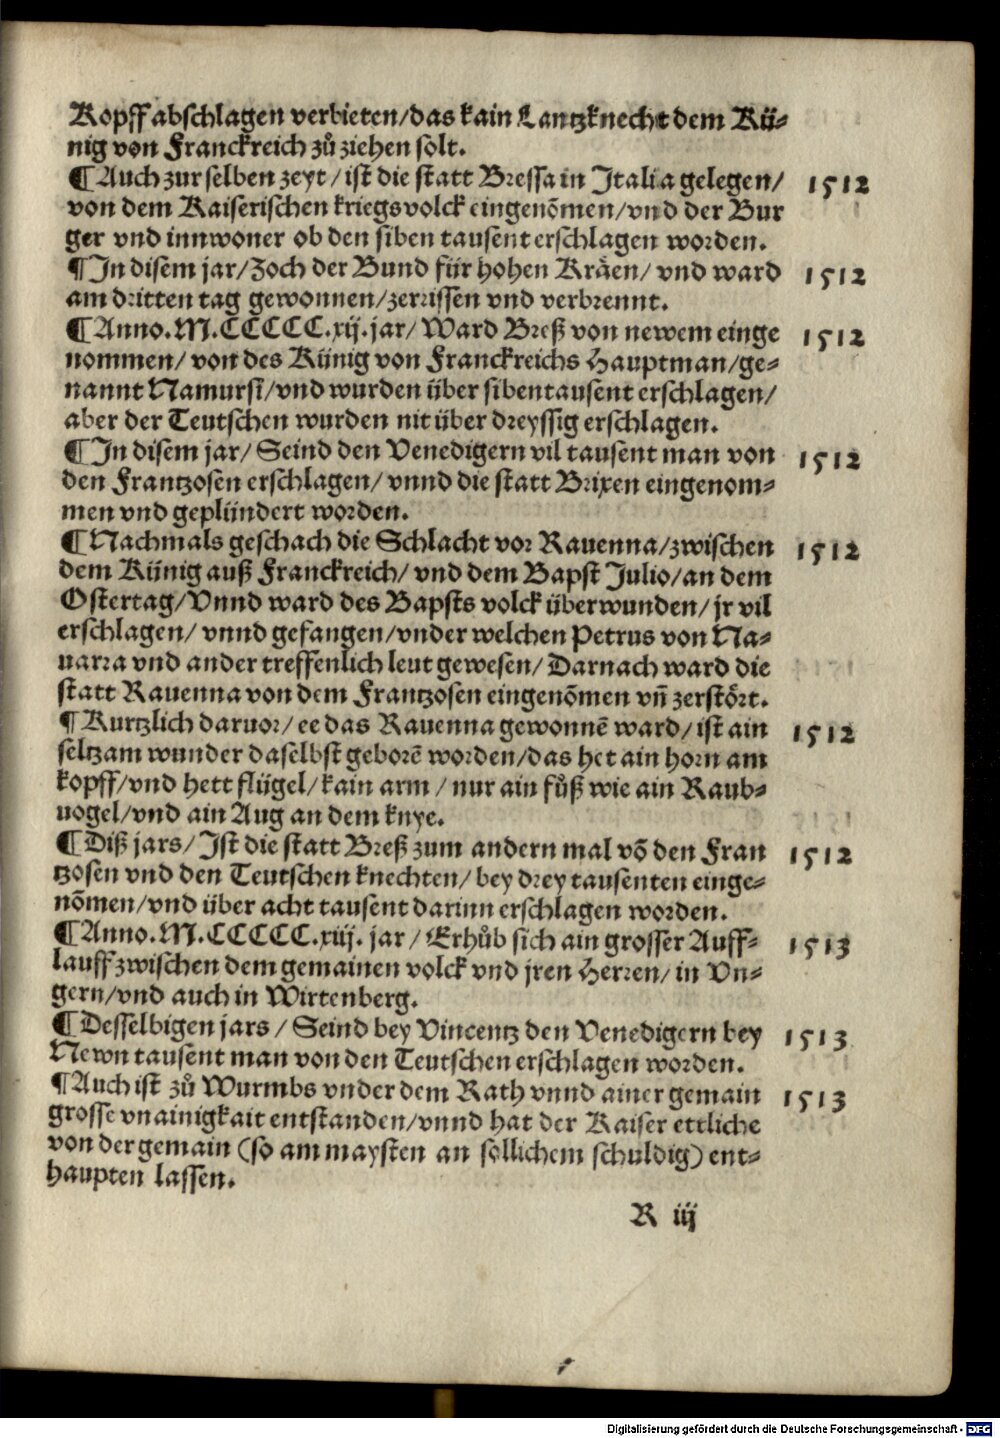 Kopff abschlagen verbieten/das kain Lantzknecht dem Kü⸗
nig von Franckreich zů ziehen solt.
¶Auch zur selben zeyt/ist die statt Bressa in Italia gelegen/ 1512
von dem Kaiserischen kriegsvolck eingenõmen/vnd der Bur
ger vnd innwoner ob den siben tausent erschlagen worden.
¶In disem jar/Zoch der Bund für hohen Kräen/ vnd ward 1512
am dritten tag gewonnen/zerrissen vnd verbrennt.
¶Anno.M.CCCCC.xij.jar/ Ward Breß von newem einge 1512
nommen/ von des Künig von Franckreichs Hauptman/ge⸗
nannt Namursi/vnd wurden über sibentausent erschlagen/
aber der Teutschen wurden nit über dreyssig erschlagen.
¶In disem jar/ Seind den Venedigern vil tausent man von 1512
den Frantzosen erschlagen/ vnnd die statt Brixen eingenom⸗
men vnd geplündert worden.
¶Nachmals geschach die Schlacht vor Rauenna/zwischen 1512
dem Künig auß Franckreich/ vnd dem Bapst Julio/an dem
Ostertag/Vnnd ward des Bapsts volck überwunden/ jr vil
erschlagen/ vnnd gefangen/vnder welchen Petrus von Na⸗
uarra vnd ander treffenlich leut gewesen/ Darnach ward die
statt Rauenna von dem Frantzosen eingenõmen vñ zerstört.
¶Kurtzlich daruor/ ee das Rauenna gewonnẽ ward/ ist ain 1512
seltzam wunder daselbst geborẽ worden/das het ain horn am
kopff/vnd hett flügel/ kain arm / nur ain fůß wie ain Raub⸗
uogel/vnd ain Aug an dem knye.
¶Diß jars/ Ist die statt Breß zum andern mal võ den Fran 1512
tzosen vnd den Teutschen knechten/ bey drey tausenten einge⸗
nõmen/vnd über acht tausent darinn erschlagen worden.
¶Anno.M.CCCCC.xiij. jar / Erhůb sich ain grosser Auff⸗ 1513
lauff zwischen dem gemainen volck vnd jren Herren/ in Vn⸗
gern/vnd auch in Wirtenberg.
¶Desselbigen jars / Seind bey Vincentz den Venedigern bey 1513
Newn tausent man von den Teutschen erschlagen worden.
¶Auch ist zů Wurmbs vnder dem Rath vnnd ainer gemain 1513
grosse vnainigkait entstanden/vnnd hat der Kaiser ettliche
von der gemain (so am maysten an sollichem schuldig) ent⸗
haupten lassen.
R iij
Digitalisierung gefördert durch die Deutsche Forschungsgemeinschaft - DFG